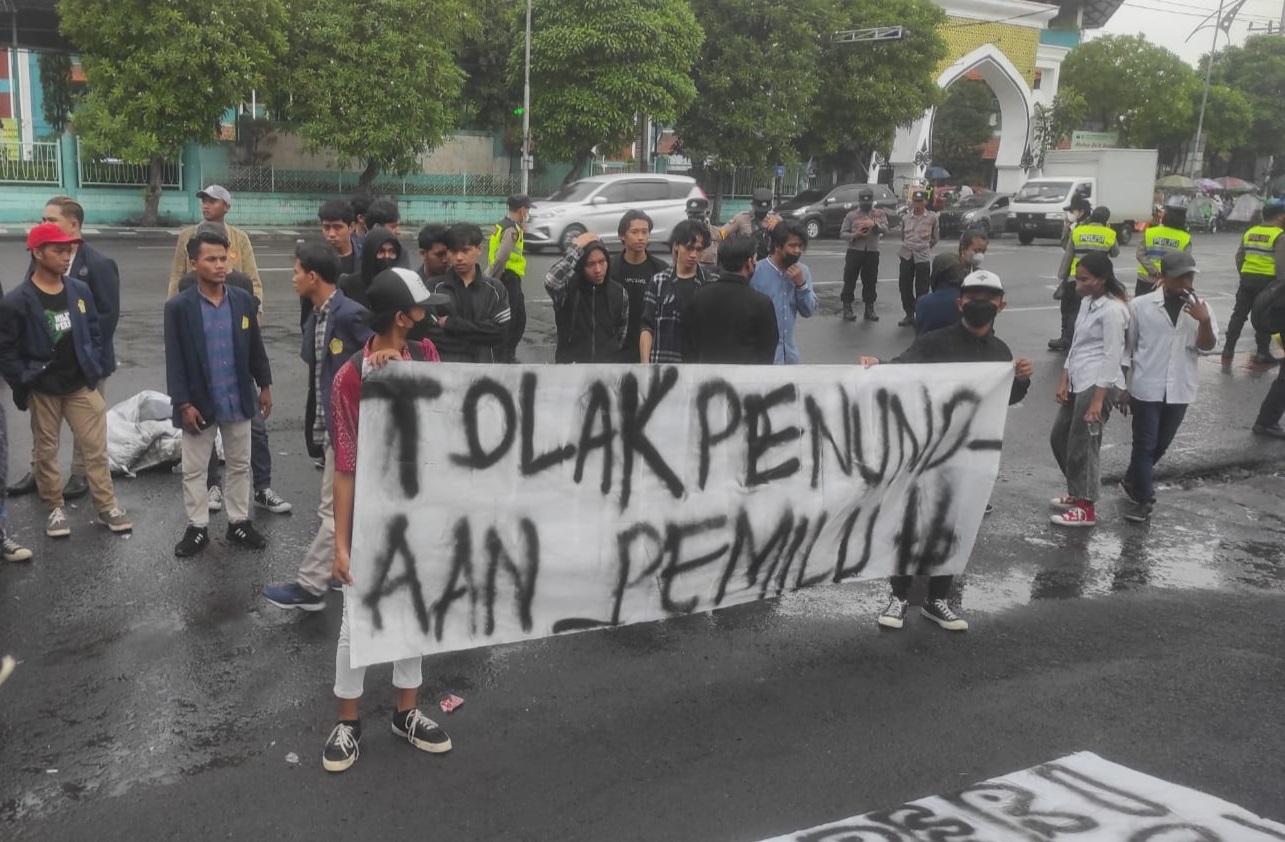 TOLAK PENUND-
AAN PEMILU !!
POLISI
POLISI
POLISI